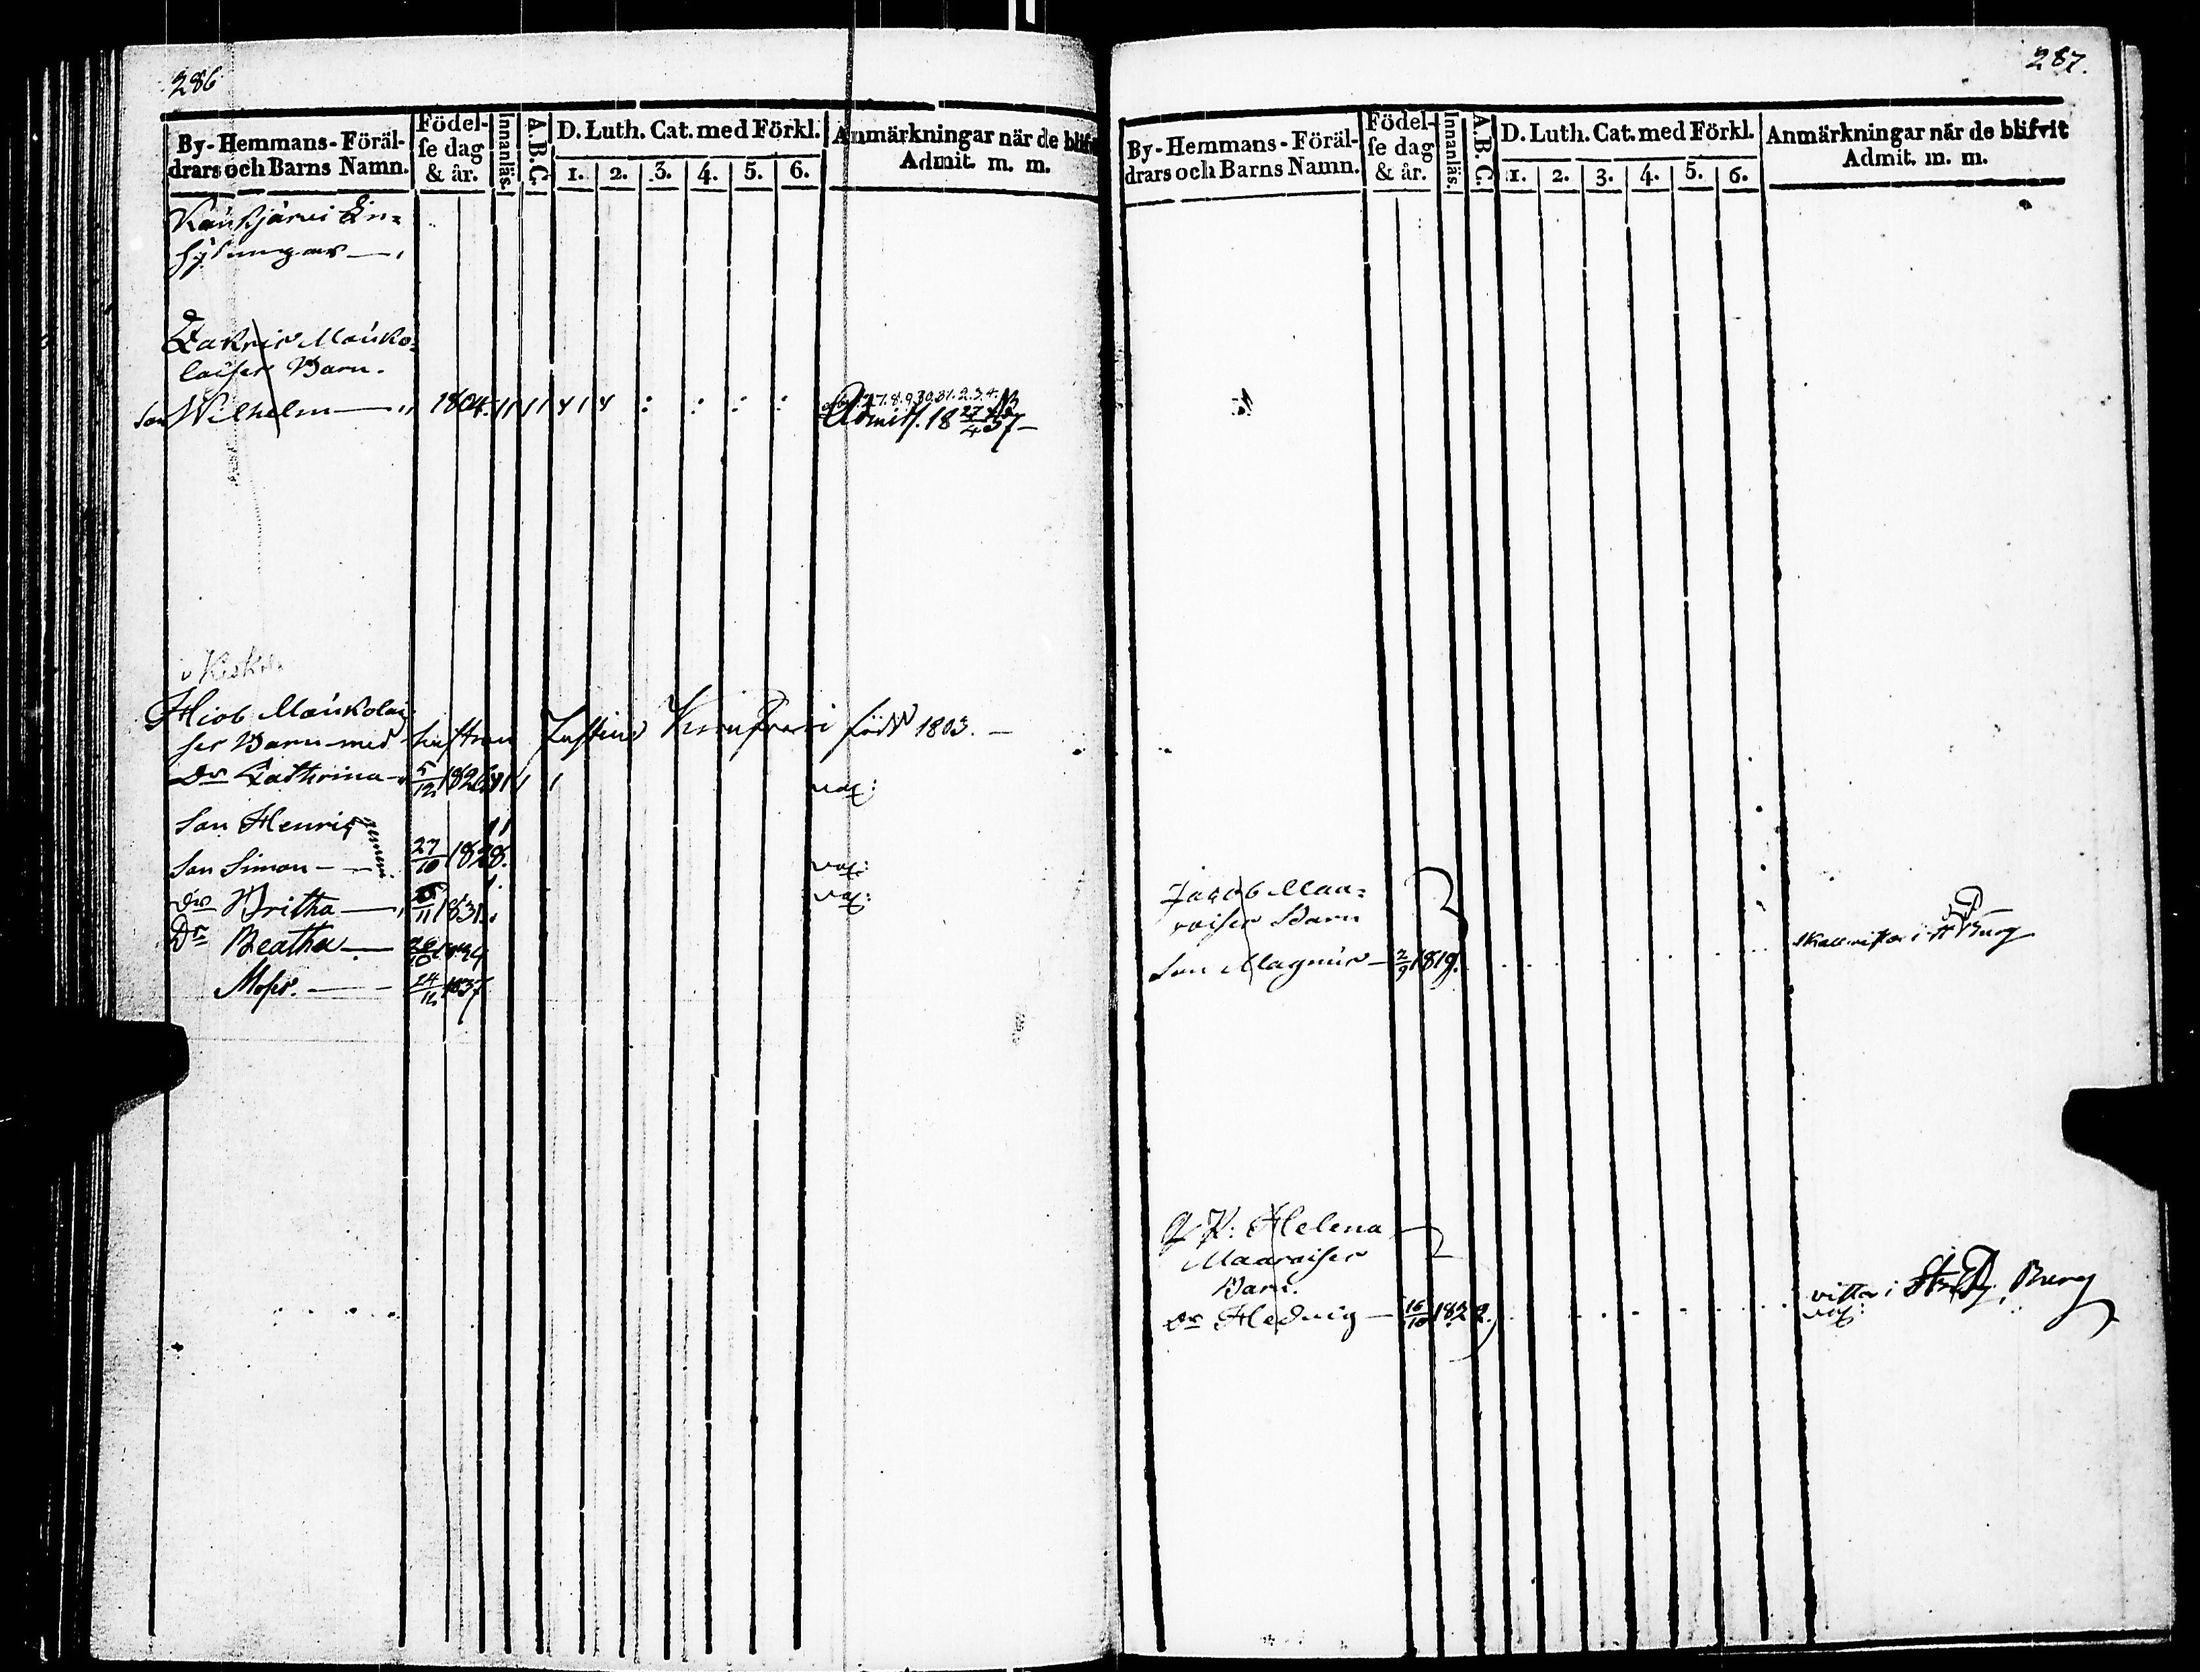 286
By-Hemmans-Föräl-
drars och Barns Namn.
Födel-
se dag
& år.
Innanläs.
A.B.C.
D. Luth. Cat. med Förkl.
1. 2. 3. 4. 5. 6.
Anmärkningar när de blifvit
Admit. m. m.
Kaukjärvi In-
hysningar
Zakris Maúko-
laises Barn.
Son Wilhelm 1804.
Admitt. 18 27/4 37
Hiob Maúkolai-
ses Barn med hustrun Justina född 1803.
Dr Cathrina 5/12 1826 vac:
Son Henric
Son Simon 27/10 1828. vac:
Dr Britha 11 1831. vac:
Dr Beatha 26/10 1834
Moses. 24/12 1837
287.
By-Hemmans-Föräl-
drars och Barns Namn.
Födel-
se dag
& år.
Innanläs.
A.B.C.
D. Luth. Cat. med Förkl.
1. 2. 3. 4. 5. 6.
Anmärkningar när de blifvit
Admit. m. m.
Jacob Maa-
raises Barn
Son Magnús 2/9 1819. i St P Burg
Q. P: Helena
Maaraises
Barn.
Dr Hedvig 16/10 1822. vistas i St P. Burg
vac: